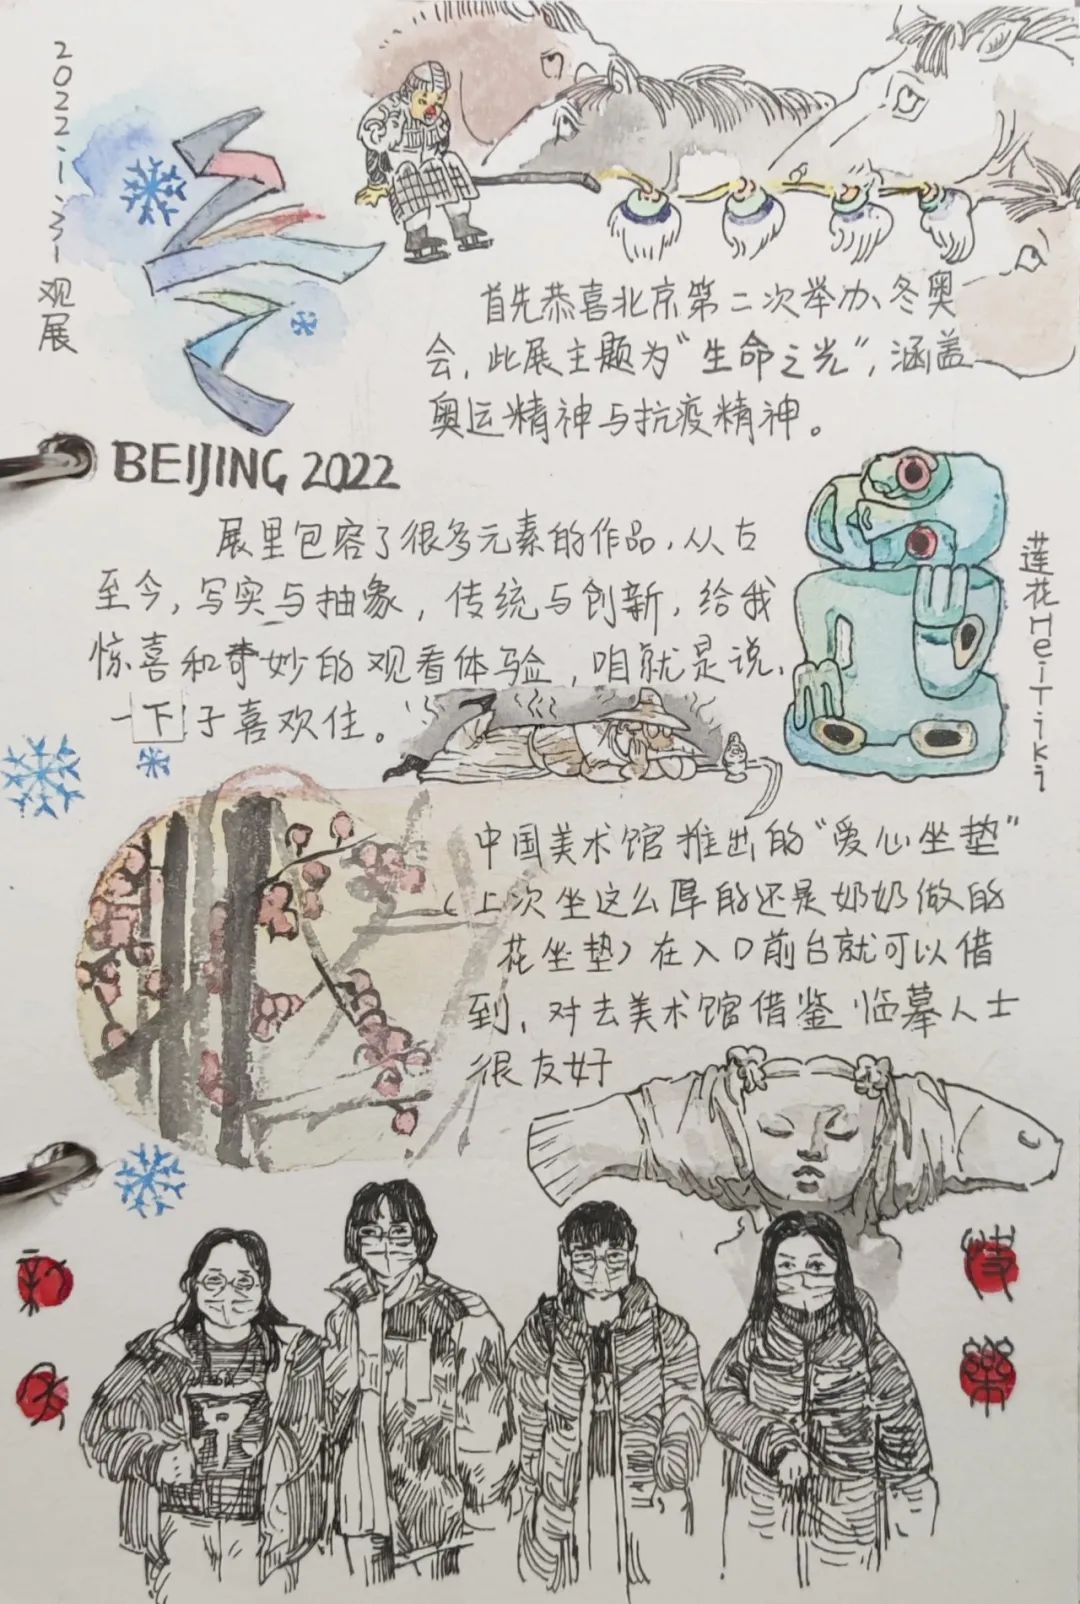 2022.1.3一观展
首先恭喜北京第二次举办、冬奥
会，此展主题为“生命之光”，涵盖
奥运精神与抗疫精神。
BEIJING 2022
展里包容了很多元素的作品，从古
至今，写实与抽象，传统与创新，给我
惊喜和奇妙的观看体验，咱就是说、
一下子喜欢住。
莲花HeiTiki
中国美术馆推出的“爱心坐垫”
（上次坐这么厚的还是奶奶做的
花坐垫）在入口前台就可以借
到，对去美术馆借鉴临摹人士
很友好